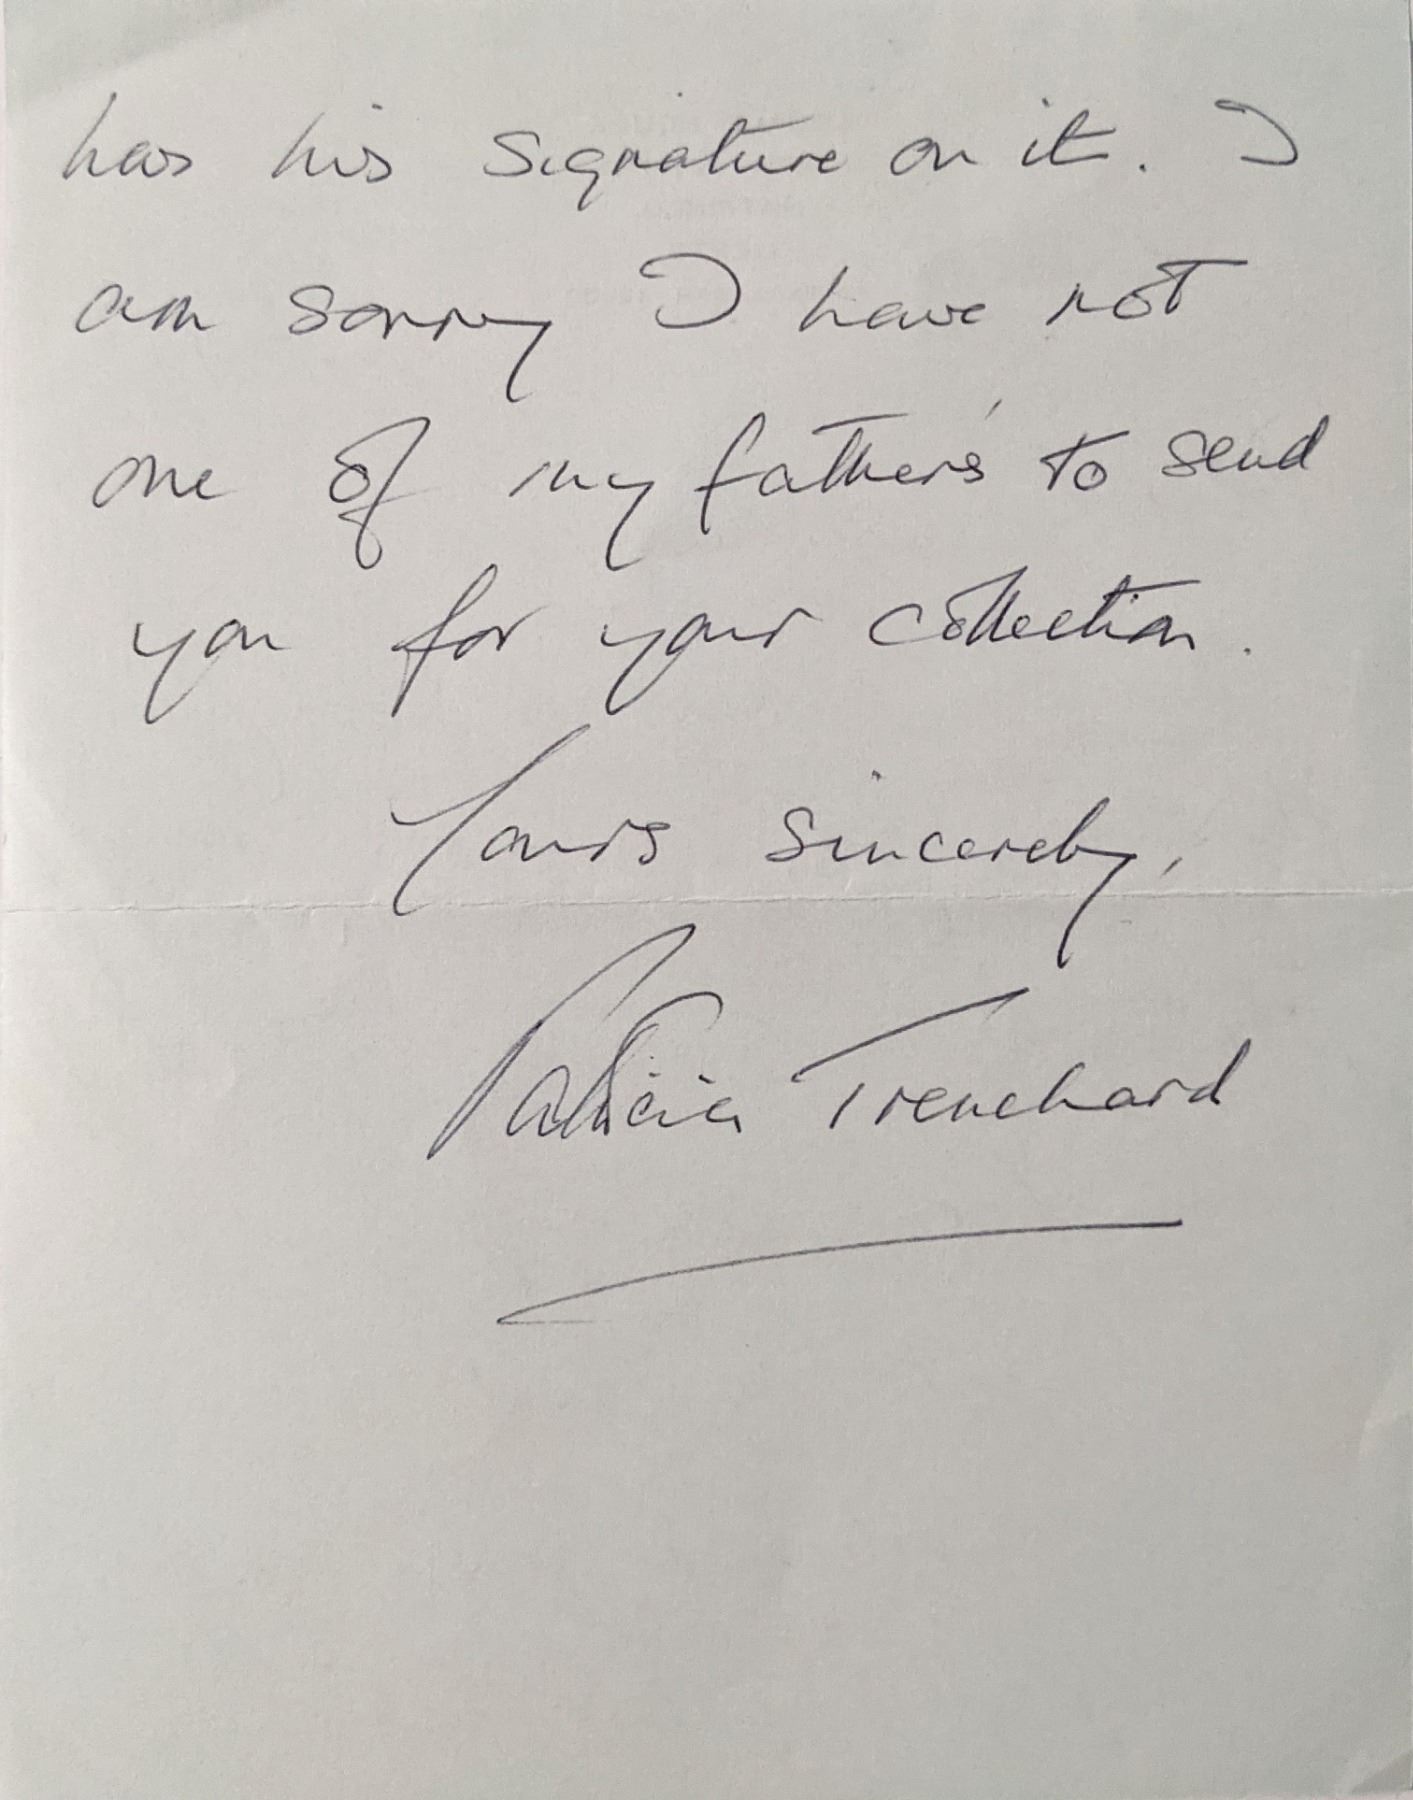 has his signature on it. I
am sorry I have not
one of my father's to send
you for your collection.
Yours sincerely,
Patricia Trenchard